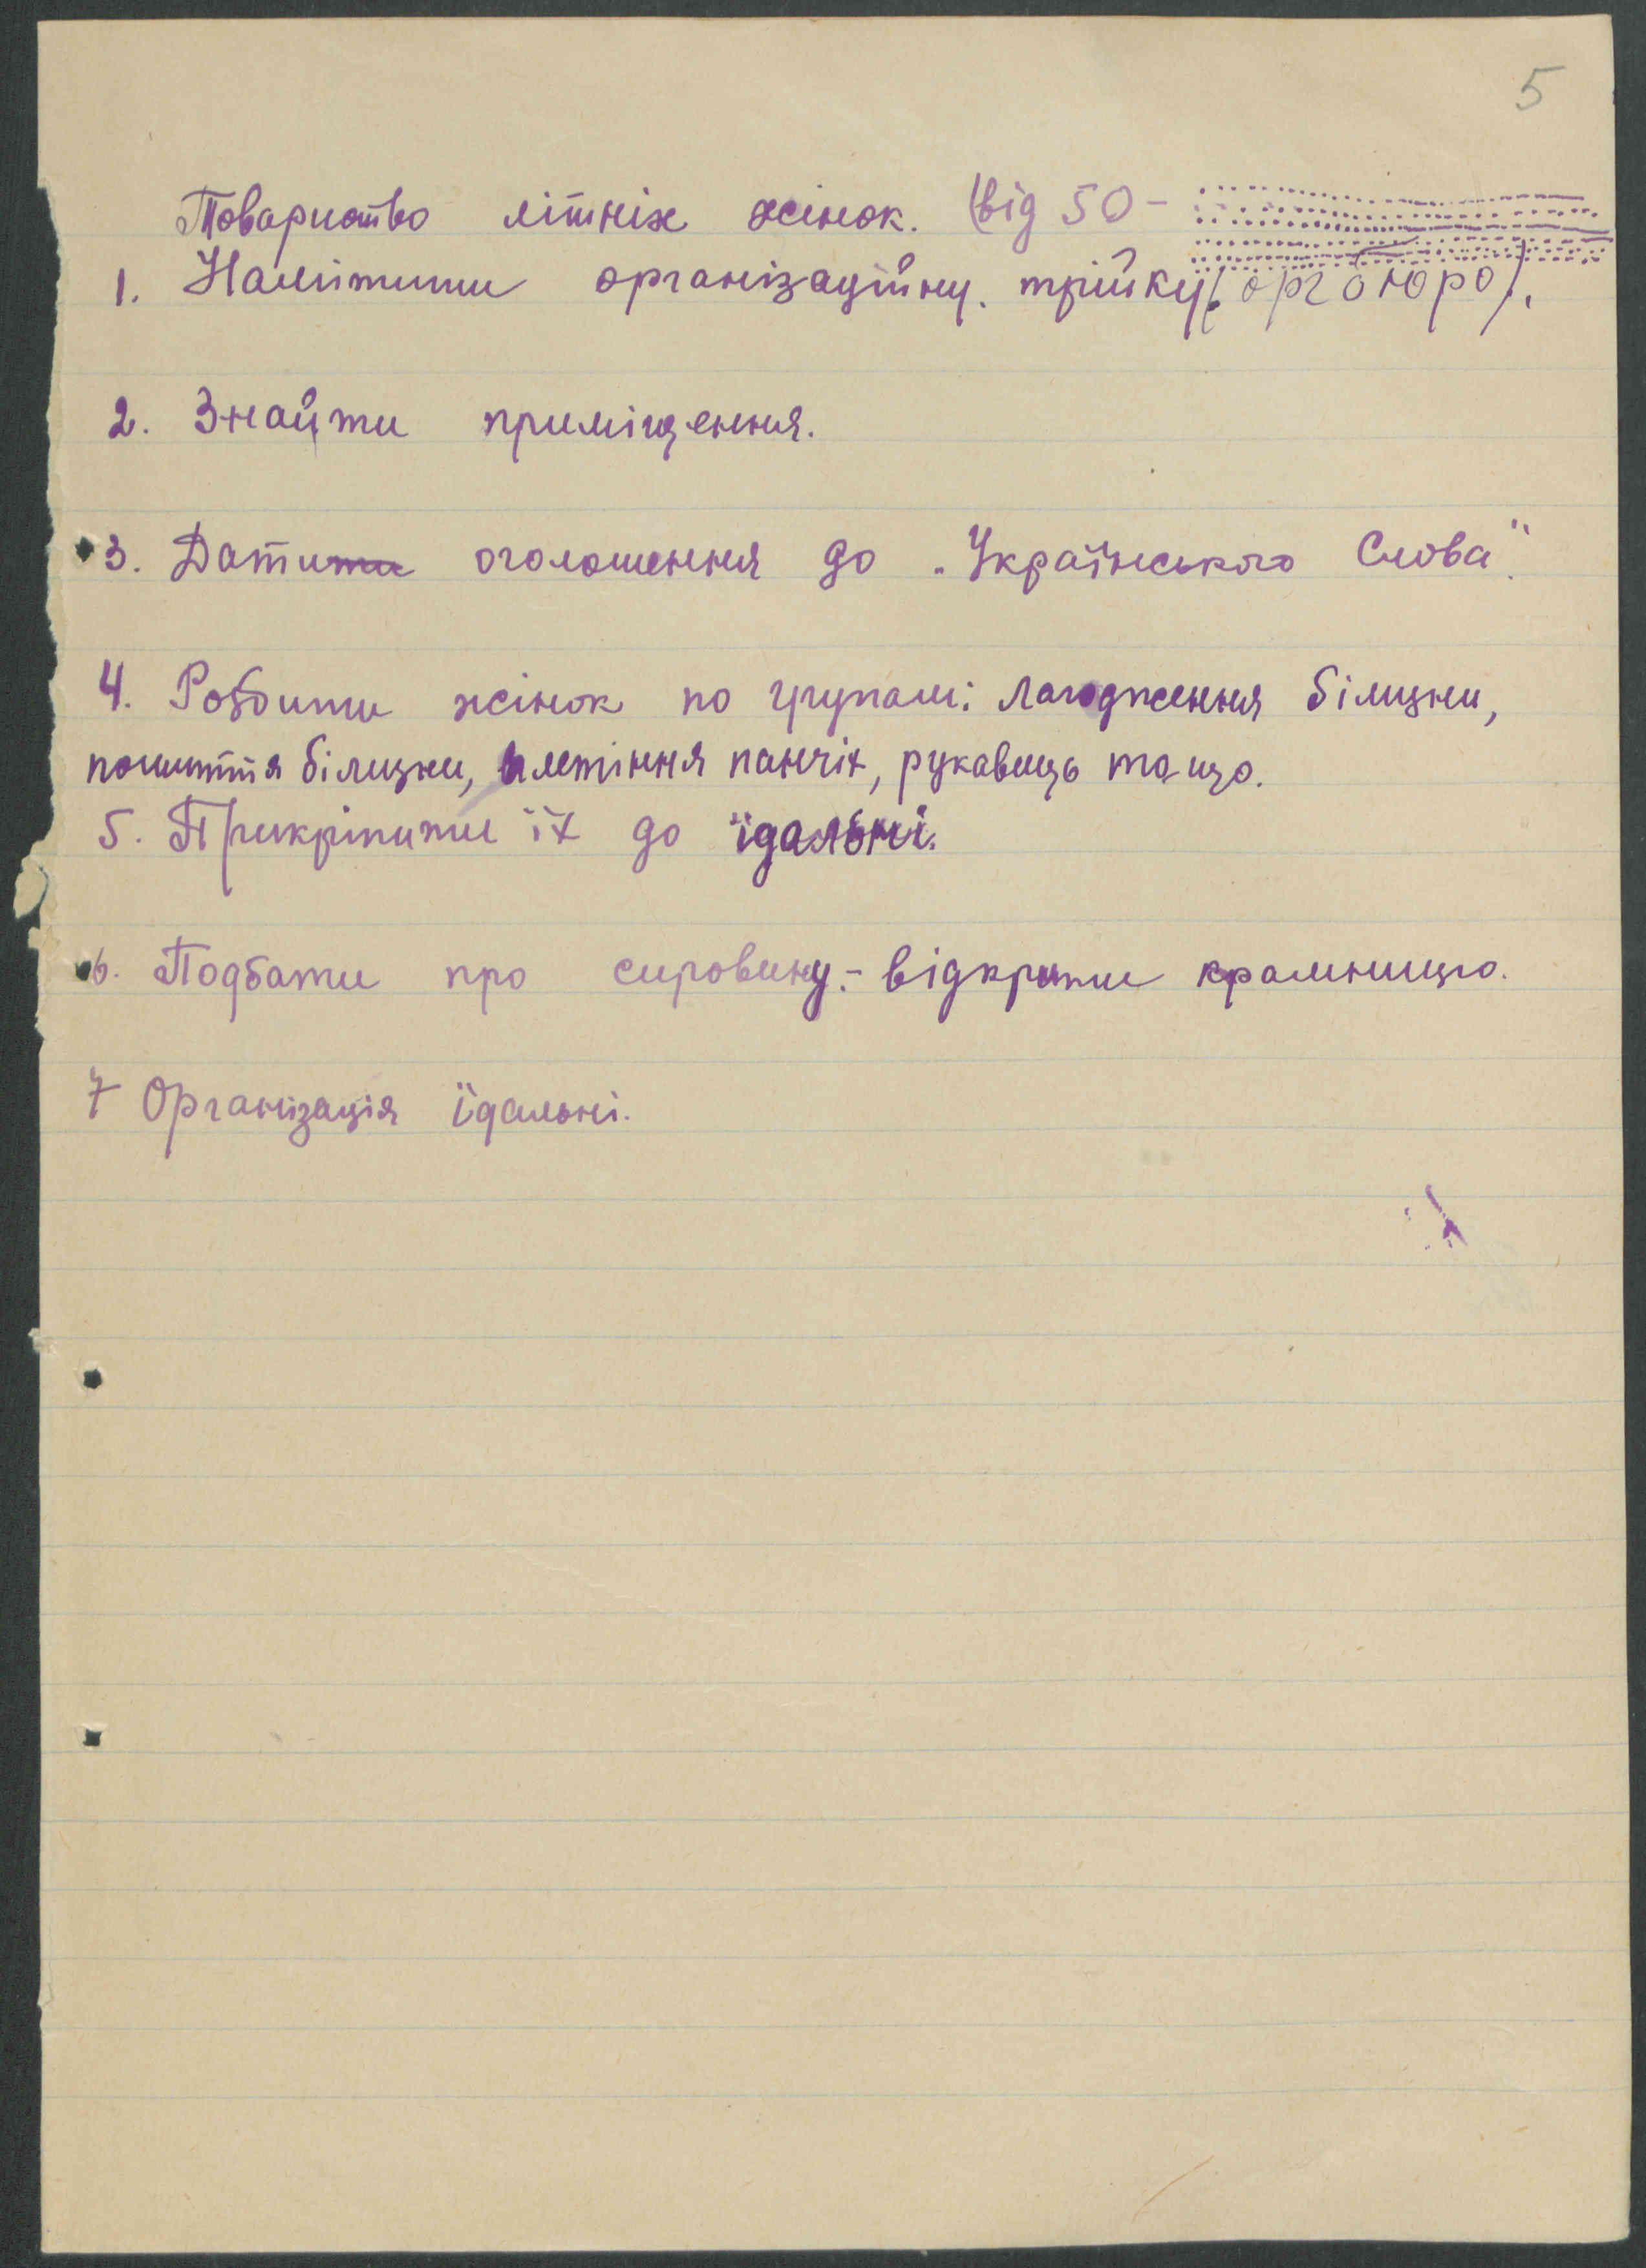 5
Товариство літніх жінок. (від 50 -
1. Намітити організаційну. трійку (орг бюро).
2. Знайти приміщення.
3. Датити оголошення до „Українського Слова".
4. Розбити жінок по групам: лагодження білизни,
пошиття білизни, плетіння панчіх, рукавиць тощо.
5. Прикріпити їх до їдальні.
6. Подбати про сировину. - відкрити крамницю.
7 Організація їдальні.